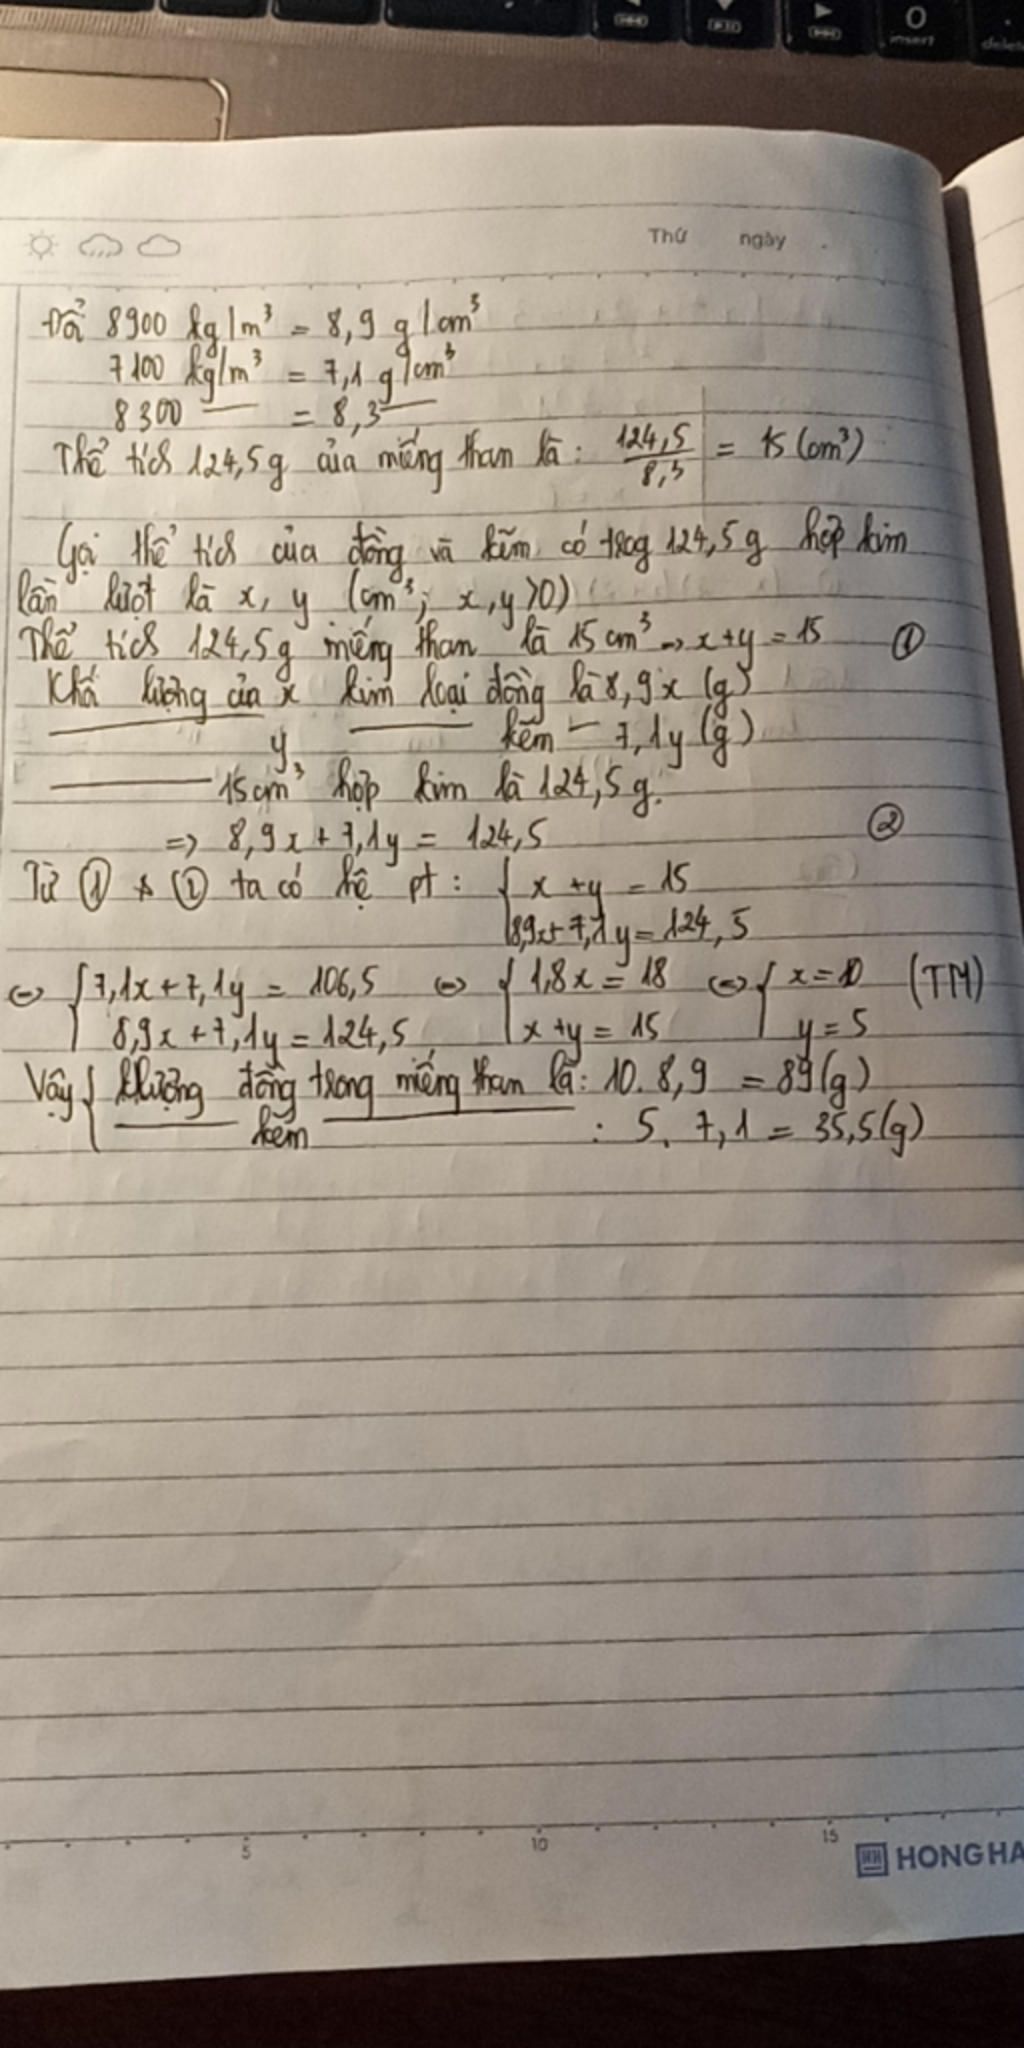 insert
delete
Thứ ngày
Đổi 8900 kg/m³ = 8,9 g/cm³
7100 kg/m³ = 7,1 g/cm³
8300 — = 8,3 —
Thể tích 124,5g của miếng than là: 124,5/8,3 = 15 (cm³)
Gọi thể tích của đồng và kẽm có trog 124,5g hợp kim
lần lượt là x, y (cm³; x, y >0)
Thể tích 124,5g miếng than là 15cm³ → x+y = 15 ①
Khố lượng của x kim loại đồng là 8,9x (g)
— y — kẽm — 7,1y (g)
— 15cm³ hợp kim là 124,5g.
=> 8,9x + 7,1y = 124,5 ②
Từ ① & ② ta có hệ pt: { x + y = 15
8,9x+7,1y = 124,5
⇔ { 7,1x + 7,1y = 106,5 ⇔ { 1,8x = 18 ⇔ { x = 10 (TM)
8,9x + 7,1y = 124,5 x + y = 15 y = 5
Vậy { klượng đồng trong miếng than là: 10. 8,9 = 89(g)
— kẽm — : 5. 7,1 = 35,5(g)
5 10 15
HONG HA